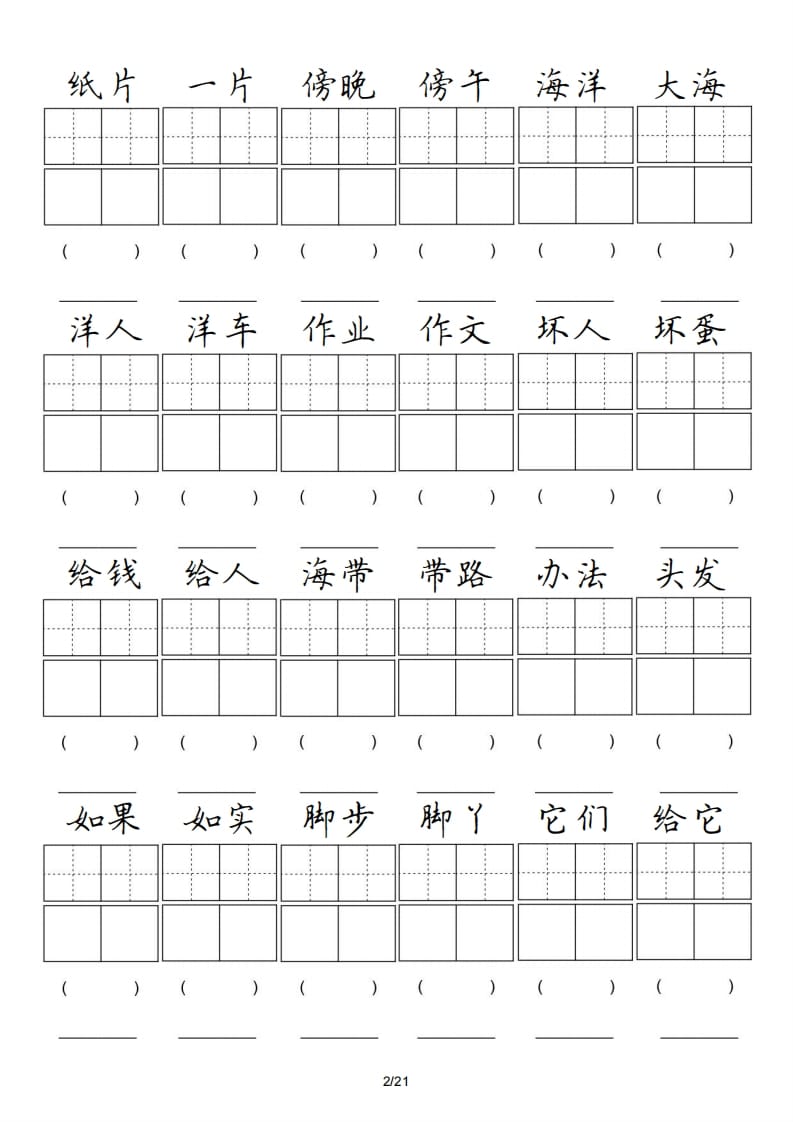 纸片 一片 傍晚 傍午 海洋 大海
( ) ( ) ( ) ( ) ( ) ( )
洋人 洋车 作业 作文 坏人 坏蛋
( ) ( ) ( ) ( ) ( ) ( )
给钱 给人 海带 带路 办法 头发
( ) ( ) ( ) ( ) ( ) ( )
如果 如实 脚步 脚丫 它们 给它
( ) ( ) ( ) ( ) ( ) ( )
2/21